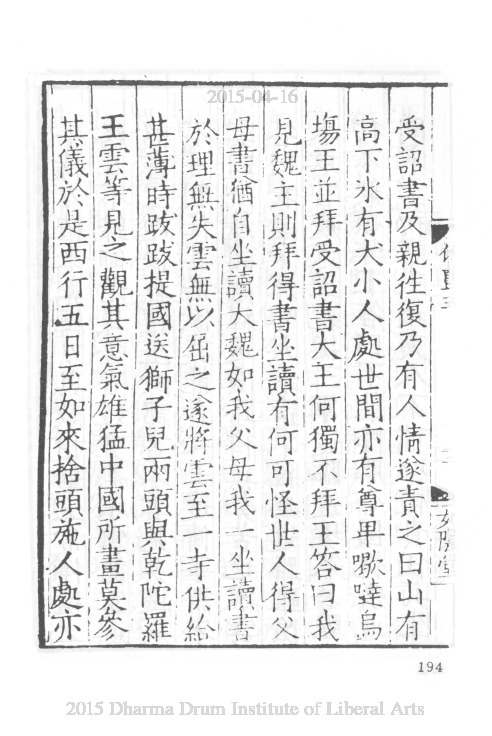 2015-04-16
受詔書及親往復乃有人情遂責之曰山有
高下水有大小人處世間亦有尊卑嚈噠烏
塲王並拜受詔書大王何獨不拜王答曰我
見魏主則拜得書坐讀有何可怪世人得父
母書猶自坐讀大魏如我父母我一坐讀書
於理無失雲無以屈之遂將雲至一寺供給
甚薄時跋跋提國送獅子兒兩頭與乾陀羅
王雲等見之觀其意氣雄猛中國所畫莫參
其儀於是西行五日至如來捨頭施人處亦
194
2015 Dharma Drum Institute of Liberal Arts